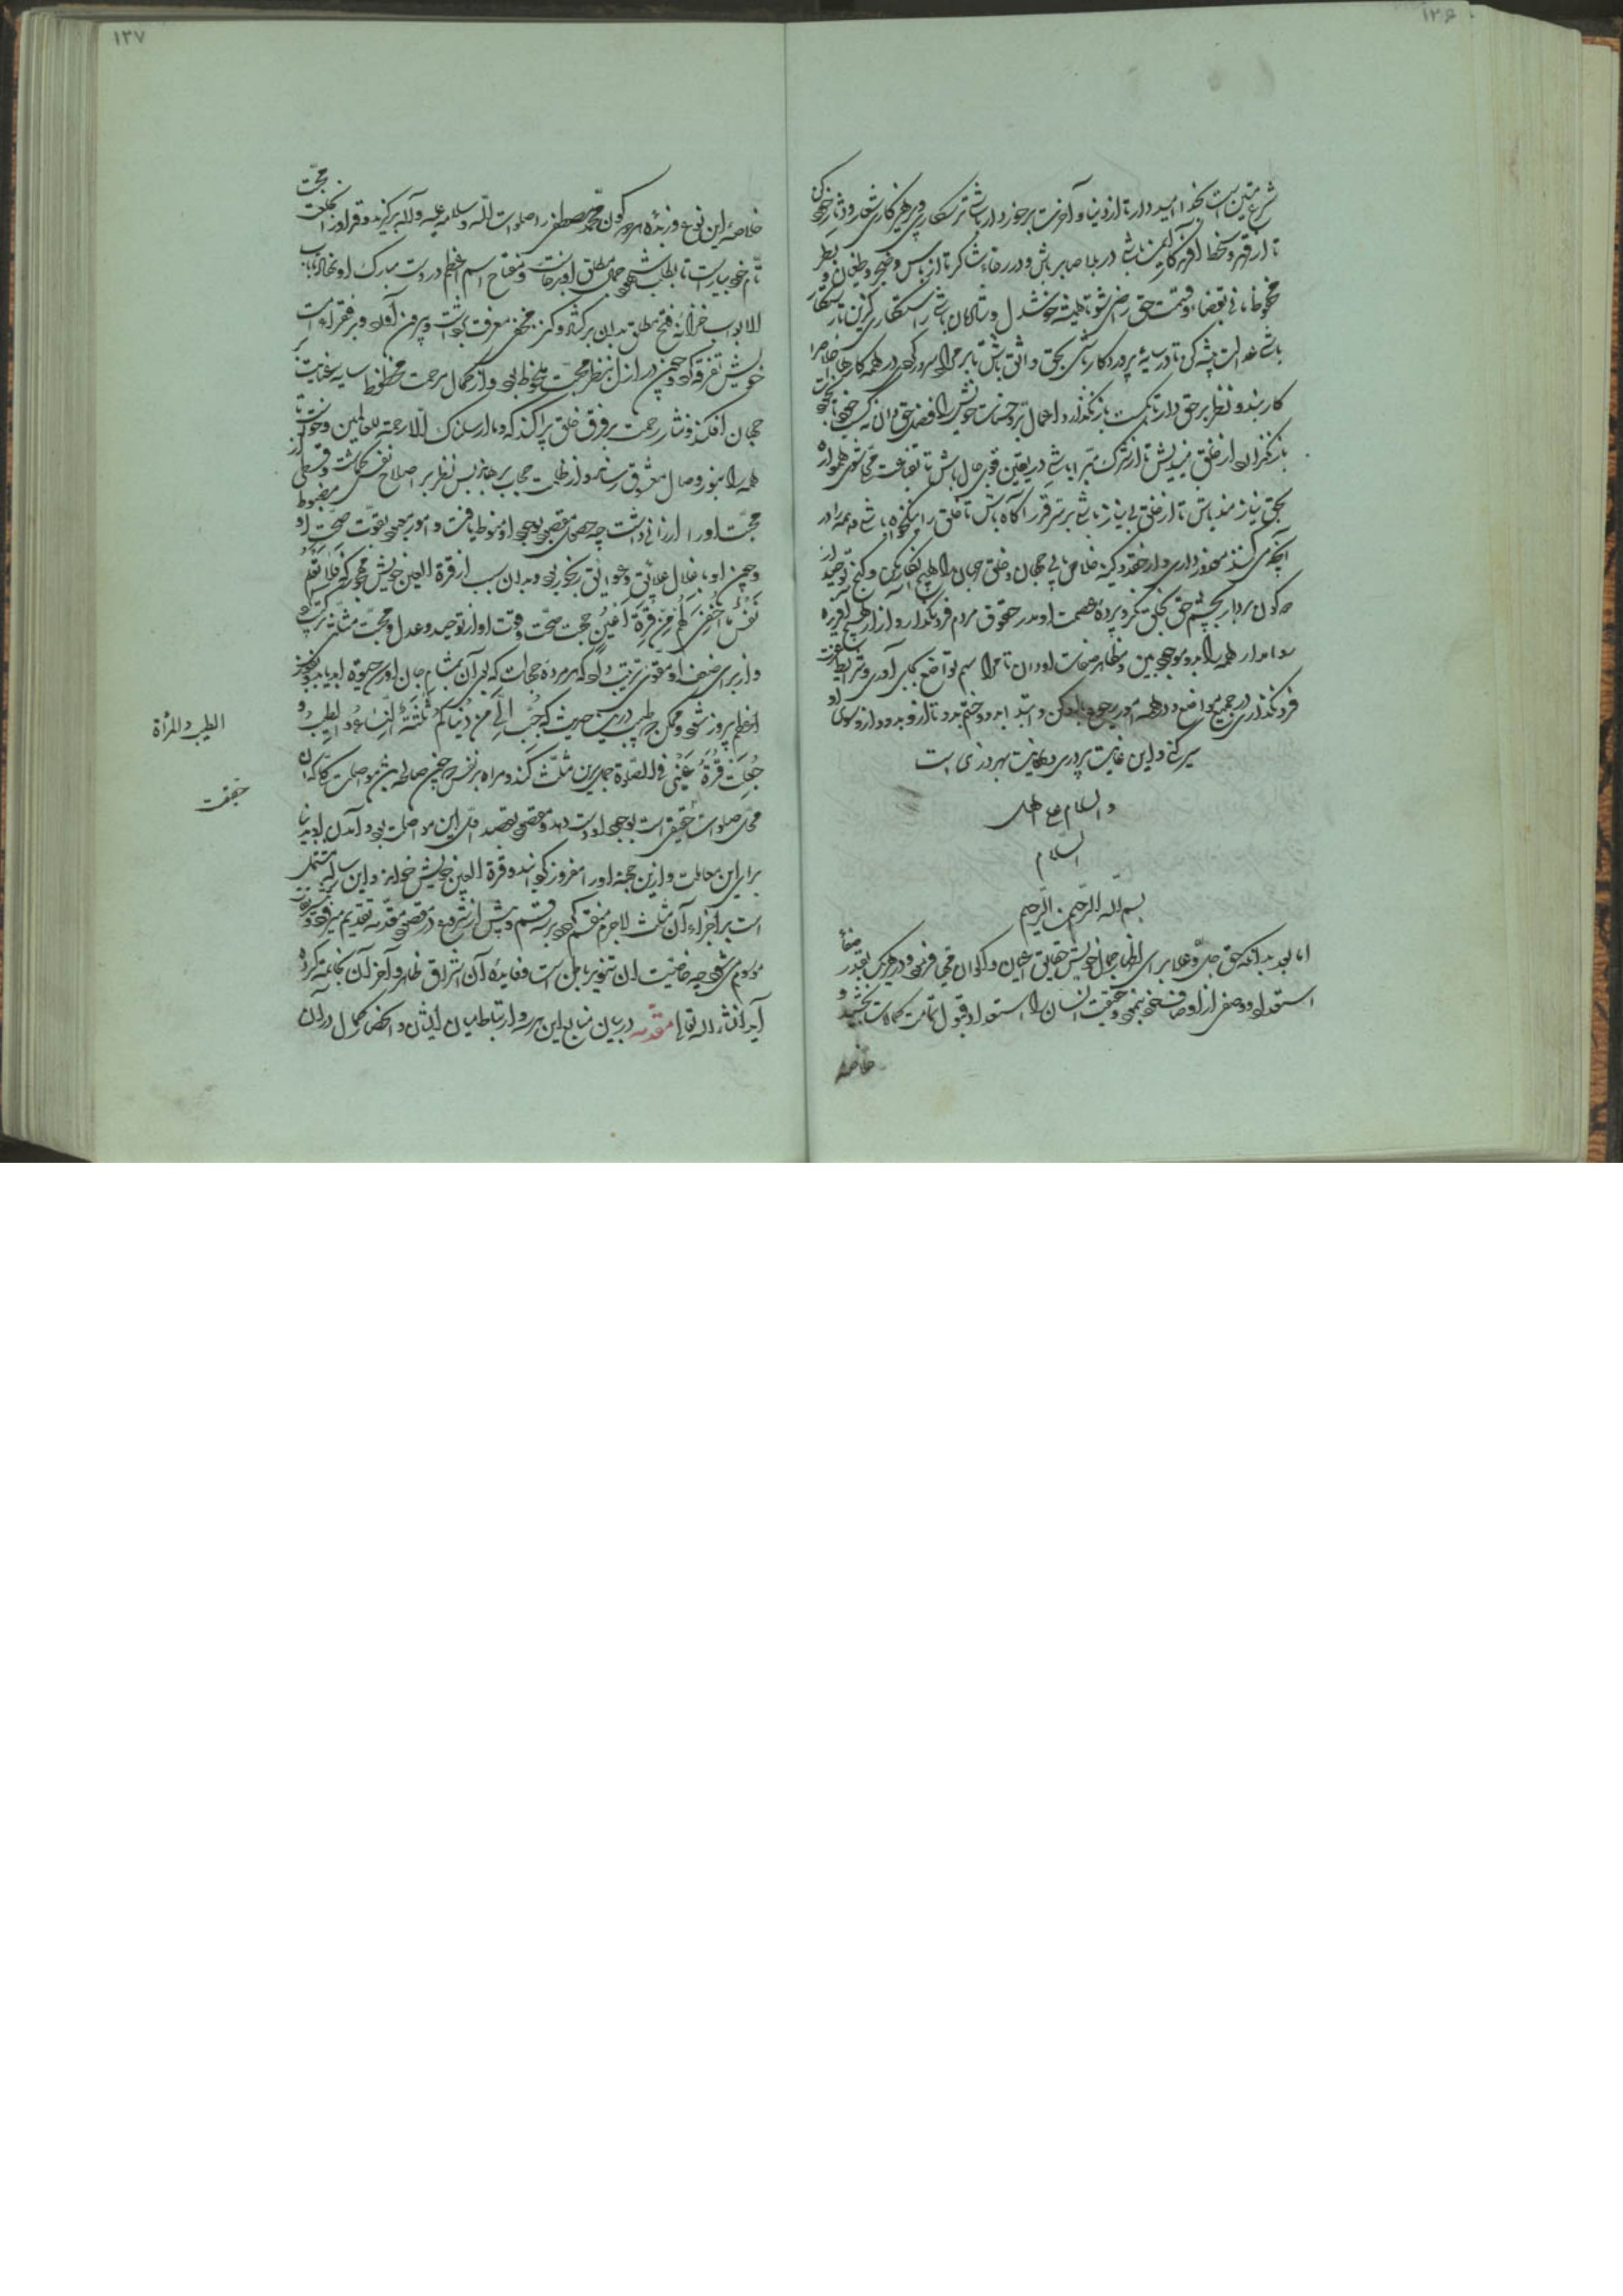 ۱۳۶
شرع متین است بخدا امیدوار تا از دنیا و آخرت برخوردار باشی ترسکاری و پرهیزکاری شعار و دثار خود کن
تا از قهر و سخط او ایمن باشی در بلا صابر باش و در رخا شاکر تا از یأس و ضجر و طغیان و بطر
محفوظ مانی بقضا و قسمت حق راضی شو تا همیشه خوشدل و شادمان باشی راستکاری گزین تا رستگار
باشی عدالت پیشه کن تا در سایهٔ پروردگار باشی بحق واثق باش تا بر مراد سرور گردی در همه کارها اخلاص را
کار بند و نظر بر حق دار تا بازنگذارد و اعمال بر و حسنات خویش را فضل حق دان نه کسب خود
باز از خلق میندیش تا از شرک مبرا باشی در یقین قوی حال باش تا بقناعت همواره
بحق نیازمند باش تا از خلق بی نیاز باشی بر سر قدر آگاه باش تا خلق را نیکخواه باشی و همه را در
آنچه می کنند معذور داری و از حقد و کینه خلاص یابی جهان و خلق جهان را هیچ انکار مکن و گنج توحید از
بردار بچشم حق بخلق نگر و پردهٔ عصمت او مدر حقوق مردم فرو مگذار و آزار هیچ آفریده
روا مدار همه را بدو موجود بین و مظاهر صفات او دان تا مراسم تواضع بجای آوری و شرایط
فرو نگذاری در جمیع مواضع و در همه امور رجوع بدو کن و ابتدا بدو و ختم بدو تا از او بدو و از او سوی او
سیر کنی و این غایت پروری و نهایت بهروزی است
والسلام علی اهل
السلام
بسم الله الرحمن الرحیم
اما بعد بدانکه حق جل و علا برای اظهار جمال خویش حقایق اعیان و اکوان فرمود و در هر یک بقدر صفاء
استعداد او وصفی از اوصاف خود بنمود و حقیقت انسان را استعداد قبول تمامت کمالات بخشید و
خاصهٔ
۱۳۷
خلاصهٔ این نوع و زبدهٔ هر دو کون محمد مصطفی را صلوات الله و سلامه علیه و آله برگزید و قد او را بخلعت محبت
تام خود بیاراست تا بطلب شهود جمال مطلق او برخاست و مفتاح اسم اعظم در دست مبارک او نهاد تا باب
الابواب خزانهٔ فتح مطلق بدان برگشاد و کنز مخفی معرفت برداشت و بیرون آورد و بر فقراء امت
خویش تفرقه کرد و چون در ازل بنظر محبت ملحوظ بود و از کمال مرحمت محظوظ سایه عنایت بر
جهان افکند و نثار رحمت بر فرق خلق پراکند که و ما ارسلناک الا رحمة للعالمین و خواست تا
همه را بنور وصال معشوق رساند و از ظلمت حجاب برهاند پس نظر بر اصلاح نفس گماشت و قسطی از
محبت او را ارزانی داشت چه حصول مقصود بوجود او منوط یافت و امور بقوت صحت او مضبوط
و چون او باغلال علائق و عوائق رنجور بود و بدان سبب از قرة العین خویش مهجور که فَلا تَعْلَمُ
نَفْسٌ ما اُخْفِیَ لَهُمْ مِنْ قُرَّةِ اَعْیُنٍ جهت صحت و قوت او از توحید و عدل و محبت مثلثی ترکیب کرد
و از برای ضعف او مقوی ترتیب داد که هر مرده جهالت که بوی آن بمشام جان او رسد حیوة ابد یابد و بفوز
اعظم پیروز شود و ممکن چه طیب درین حدیث که حُبِّبَ اِلَیَّ مِنْ دُنْیاکُمْ ثَلٰثَةٌ النِّساءُ وَ الطِّیبُ وَ
جُعِلَتْ قُرَّةُ عَیْنی فِی الصَّلوة حمل برین مثلث کند و مراه بر نفس چنین صالحه مواصلت کما کان
محل صلوات حقیقی است بوجود او دست دهد و مقصود بقصد اول این مواصلت بود و آمدن او بدنیا
برای این معاملت و ازین جهت او را افروز گردانیده و قرة العین خویش خوانده و این رساله مشتمل
است بر اجزاء آن مثلث لاجرم منقسم گردد بر سه قسم و پیش از شروع در مقصود مقدمه تقدیم میرود و
موسوم می شود چه خاصیت ان تنویر باطن است و فایدهٔ آن اشراق ظاهر و آخر آن بخاتمه کرده
آید انشاء الله تعالی مقدمه در بیان مبانی این هر سه و ارتباط میان ایشان و انحصار کمال در آن
الطیب و المرأة
حقیقت